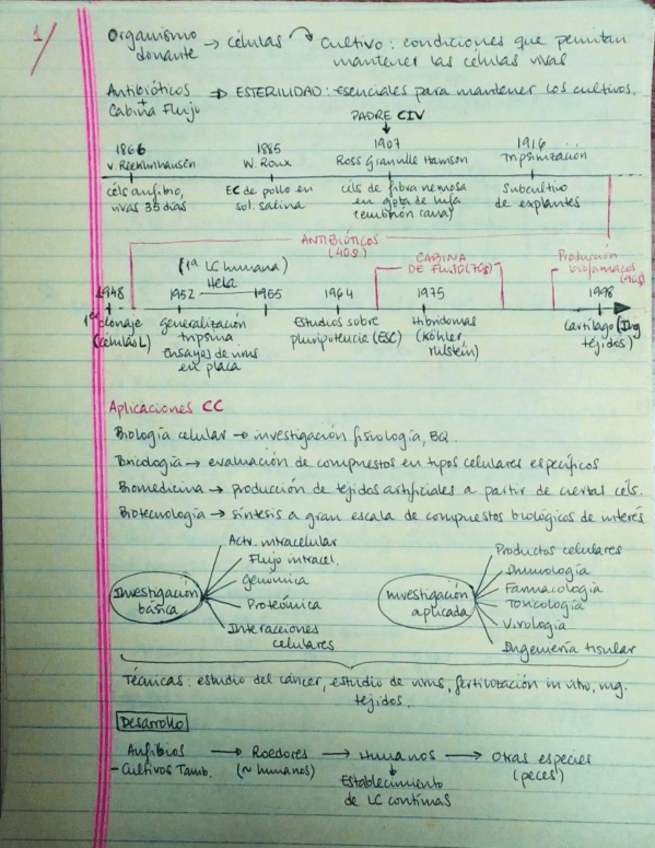 1/
Organismo donante → células ⤵ Cultivo: condiciones que permitan
mantener las células vivas
Antibióticos + Cabina Flujo ⇒ ESTERILIDAD: esenciales para mantener los cultivos.
PADRE CIV
1866 1885 1907 1916
V. Recklinhausen W. Roux Ross Granville Harrison Tripsinización
céls anfibio, EC de pollo en céls de fibra nerviosa Subcultivo
vivas 35 días sol. salina en gota de linfa de explantes
(embrión rana)
ANTIBIÓTICOS (40s)
CABINA DE FLUJO (70s)
Producción biofármacos (90s)
(1ª LC humana)
HeLa
1948 1952 1955 1964 1975 1998
1er clonaje Generalización Estudios sobre Hibridomas Cartílago (Ing
(células L) tripsina pluripotencia (ESC) (Köhler tejidos)
Ensayos de virus Milstein)
en placa
Aplicaciones CC
Biología celular → investigación fisiología, BQ.
Toxicología → evaluación de compuestos en tipos celulares específicos
Biomedicina → producción de tejidos artificiales a partir de ciertas céls.
Biotecnología → síntesis a gran escala de compuestos biológicos de interés
Investigación básica
Actv. intracelular
Flujo intracel.
Genómica
Proteómica
Interacciones celulares
Investigación aplicada
Productos celulares
Inmunología
Farmacología
Toxicología
Virología
Ingeniería tisular
Técnicas: estudio del cáncer, estudio de virus, fertilización in vitro, ing.
tejidos.
Desarrollo
Anfibios → Roedores → Humanos → Otras especies
- Cultivos Tamb. (~ humanos) (peces)
Establecimiento
de LC continuas